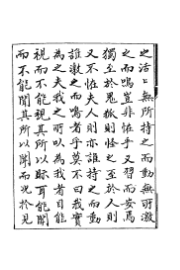 之活〻無所持之而動無所激
之而鳴豈非怪乎又習而安焉
獨至於鬼狐則怪之至於人則
又不怪夫人則亦誰持之而動
誰激之而鳴者乎莫不曰我實
為之夫我之所以為我者目能
視而不能視其所以視耳能聞
而不能聞其所以聞而况於見